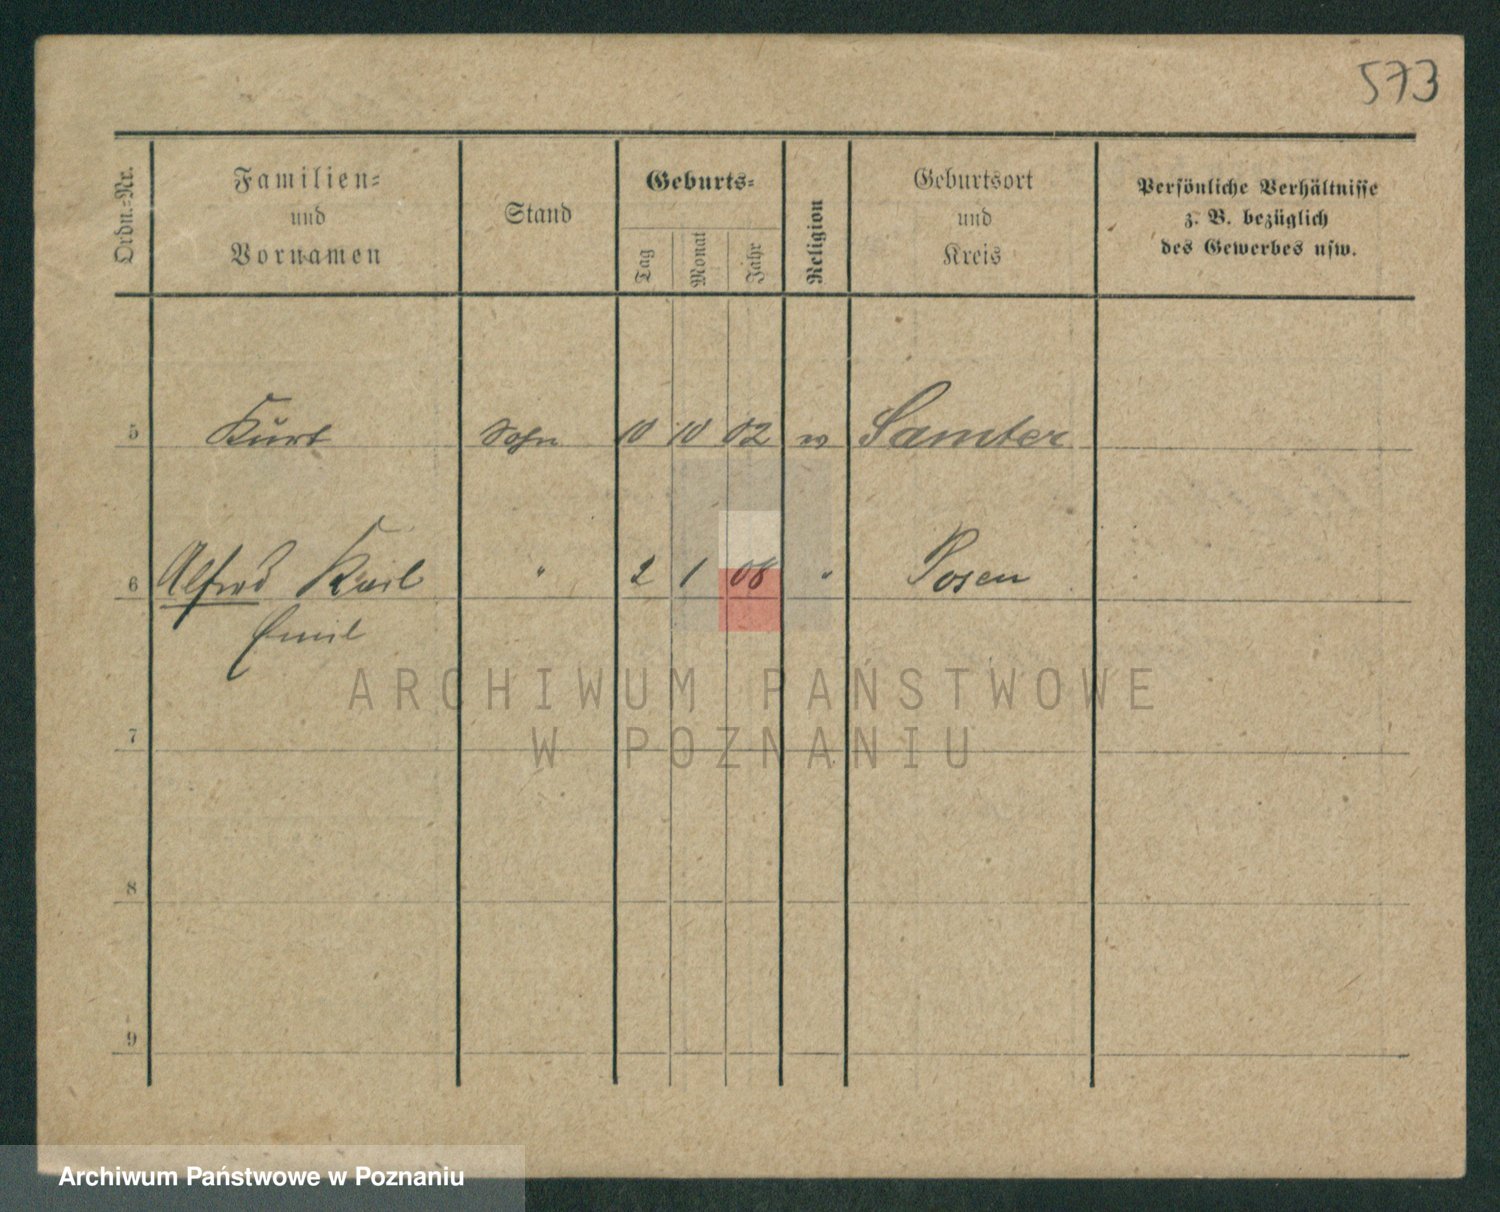 573
Ordn.-Nr.
Familien-
und
Vornamen
Stand
Geburts-
Tag
Monat
Jahr
Religion
Geburtsort
und
Kreis
Persönliche Verhältnisse
z. B. bezüglich
des Gewerbes usw.
5 Kurt Sohn 10 10 02 Samter
6 Alfred Karl " 2 1 08 " Posen
Emil
ARCHIWUM PAŃSTWOWE
W POZNANIU
7
8
9
Archiwum Państwowe w Poznaniu